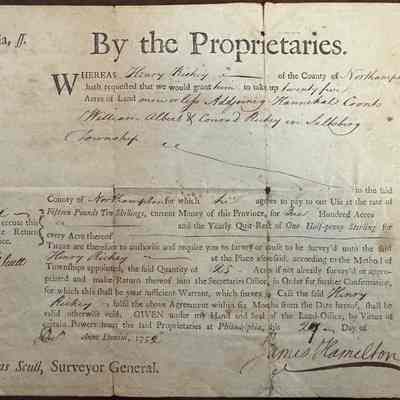 ia, ſſ.
By the Proprietaries.
WHEREAS Henry Rickey of the County of Northamp
hath requeſted that we would grant him to take up twenty five
Acres of Land more or less Adjoining
William Albert & Conrad in Salſberg
Township
in the ſaid
County of Northampton for which he agrees to pay to our Uſe at the rate of
Fifteen Pounds Ten Shillings, current Money of this Province, for One Hundred Acres
and the Yearly Quit-Rent of One Half-penny Sterling for
every Acre thereof
execute this
Return
fice.
THESE are therefore to authoriſe and require you to ſurvey or cauſe to be ſurvey'd unto the ſaid
Henry Rickey at the Place aforeſaid, according to the Method of
Townſhips appointed, the ſaid Quantity of 25 Acres if not already ſurvey'd or appro-
priated, and make Return thereof into the Secretaries Office, in Order for further Confirmation,
for which this ſhall be your ſufficient Warrant, which ſurvey in Caſe the ſaid Henry
Rickey fulfil the above Agreement within ſix Months from the Date hereof, ſhall be
valid, otherwiſe void. GIVEN under my Hand and Seal of the Land-Office, by Virtue of
certain Powers from the ſaid Proprietaries at Philadelphia, this Day of
Anno Domini, 175
James Hamilton
as Scull, Surveyor General.